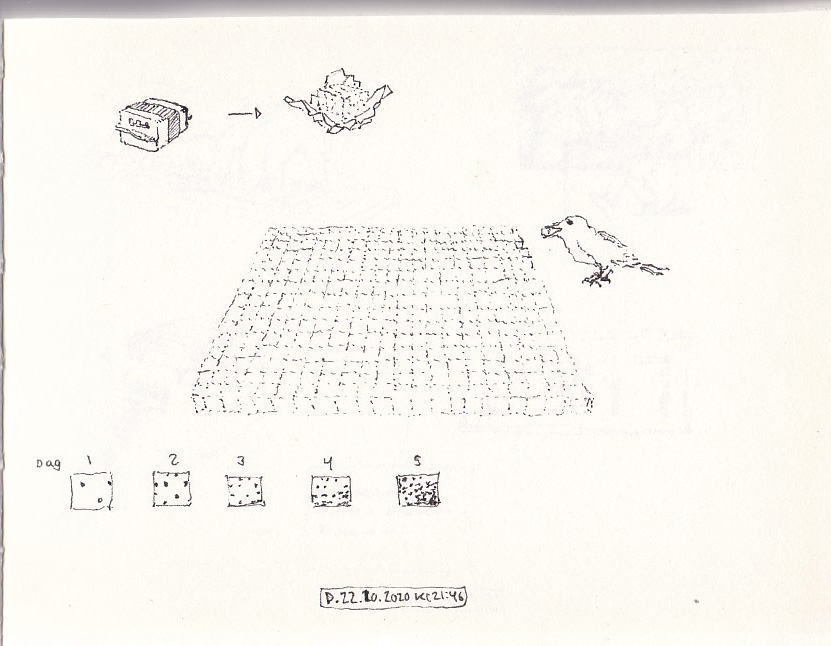 Dag 1 2 3 4 5
D.22.10.2020 Kl 21:46